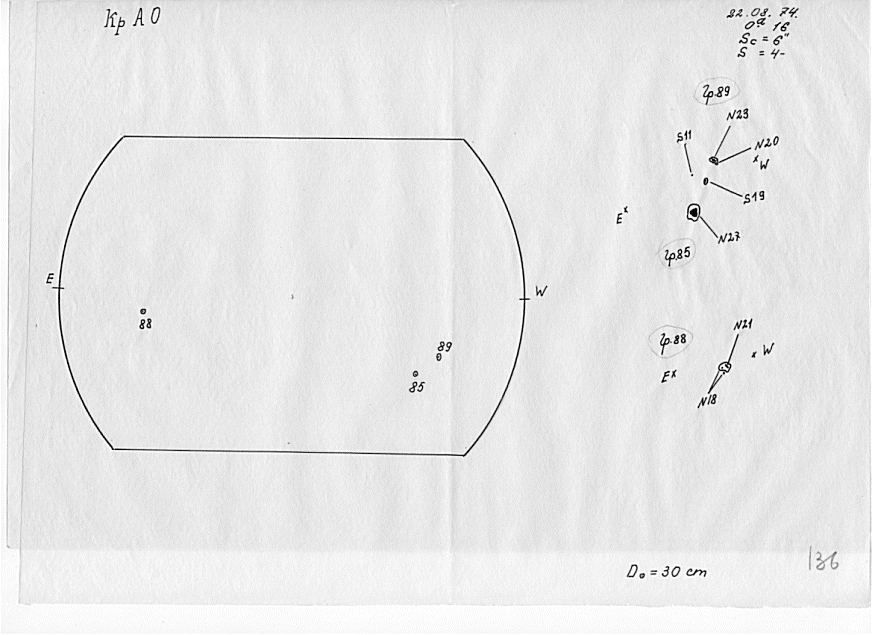 Кр А О
22.08.74.
0ʰ 16
Sc = 6"
S = 4-
гр.89
N23
S11
N20
W
S19
E
N27
гр.85
E
W
88
89
85
гр.88
N21
W
E
N18
D₀ = 30 cm
136